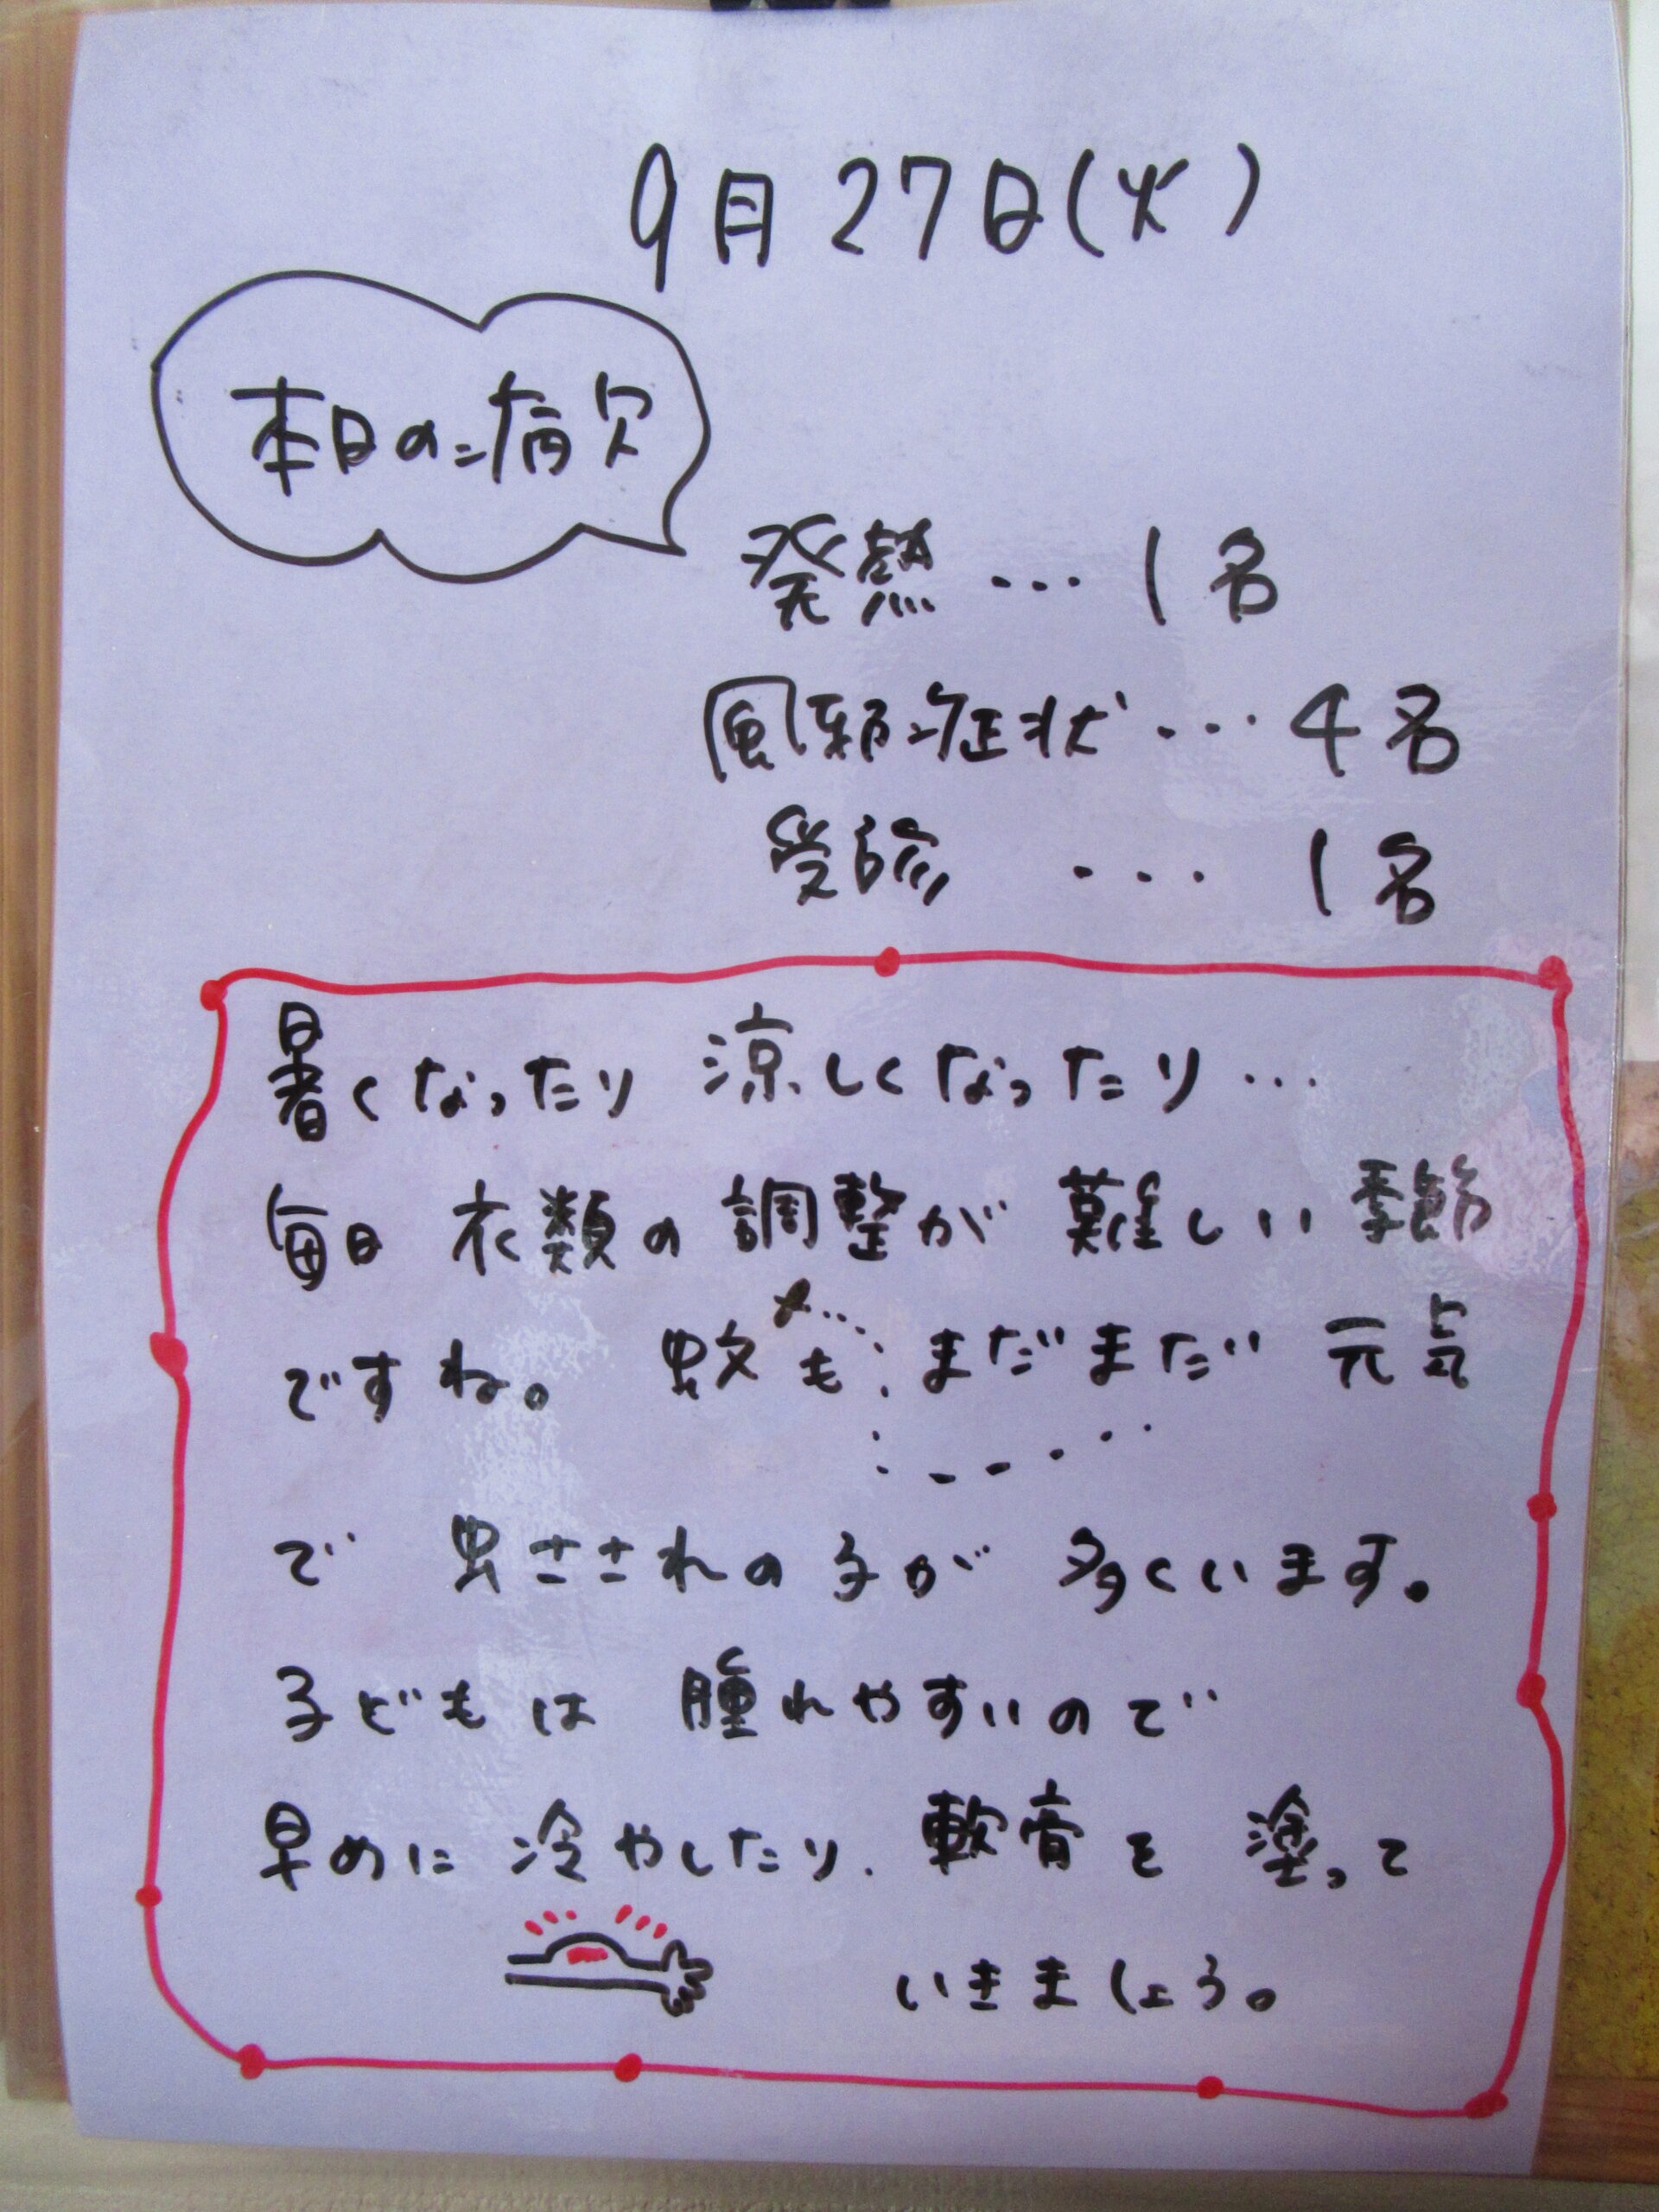 9月27日(火)
本日の病欠
発熱…1名
風邪症状…4名
受診…1名
暑くなったり涼しくなったり…
毎日衣類の調整が難しい季節
ですね。蚊もまだまだ元気
で虫さされの子が多くいます。
子どもは腫れやすいので
早めに冷やしたり、軟膏を塗って
いきましょう。